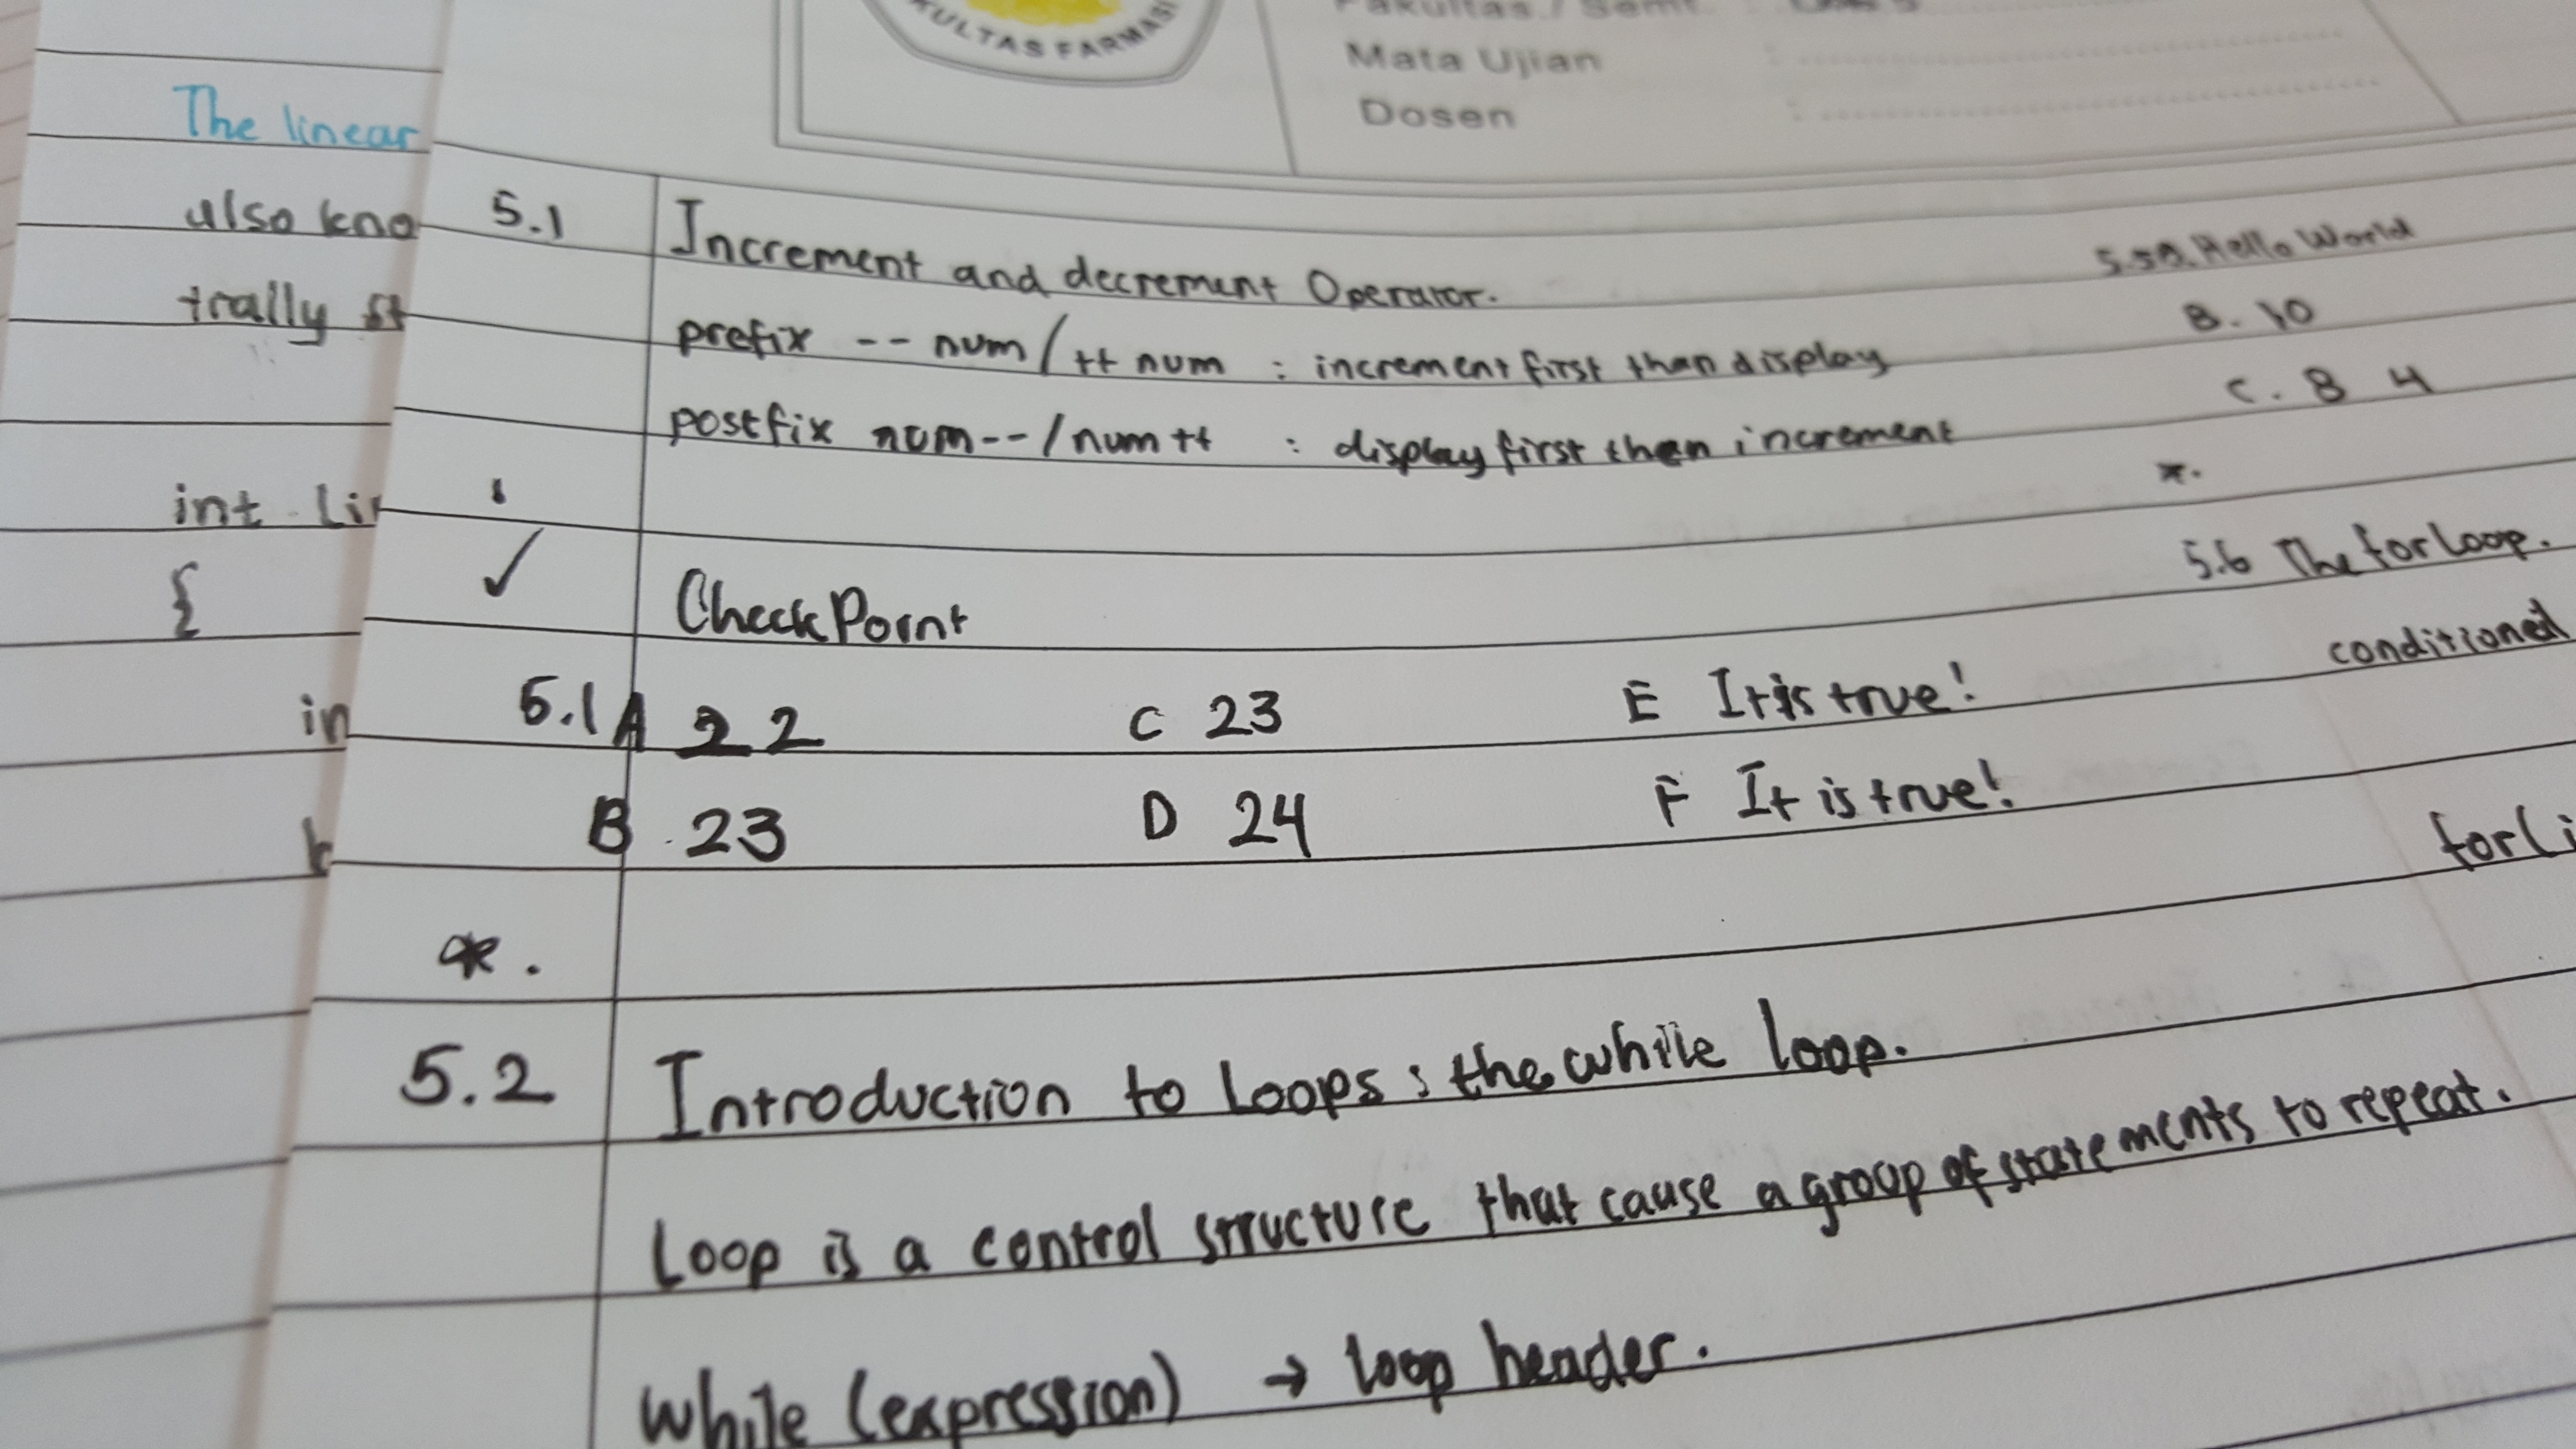 KULTAS FARMASI
Fakultas / Semt. :
Mata Ujian :
Dosen :
The linear
also kno
trally st
int lin
{
in
5.1 Increment and decrement Operator.
prefix -- num / ++ num : increment first than display
postfix num-- / num ++ : display first then increment
✓ CheckPoint
5.1 A 2 2 C 23 E It is true!
B . 23 D 24 F It is true!
*.
5.2 Introduction to Loops : the while loop.
Loop is a control structure that cause a group of statements to repeat.
While (expression) → loop header.
5.5A. Hello World
B. 10
C. 8 4
*.
5.6 The for loop.
conditioned
for(i